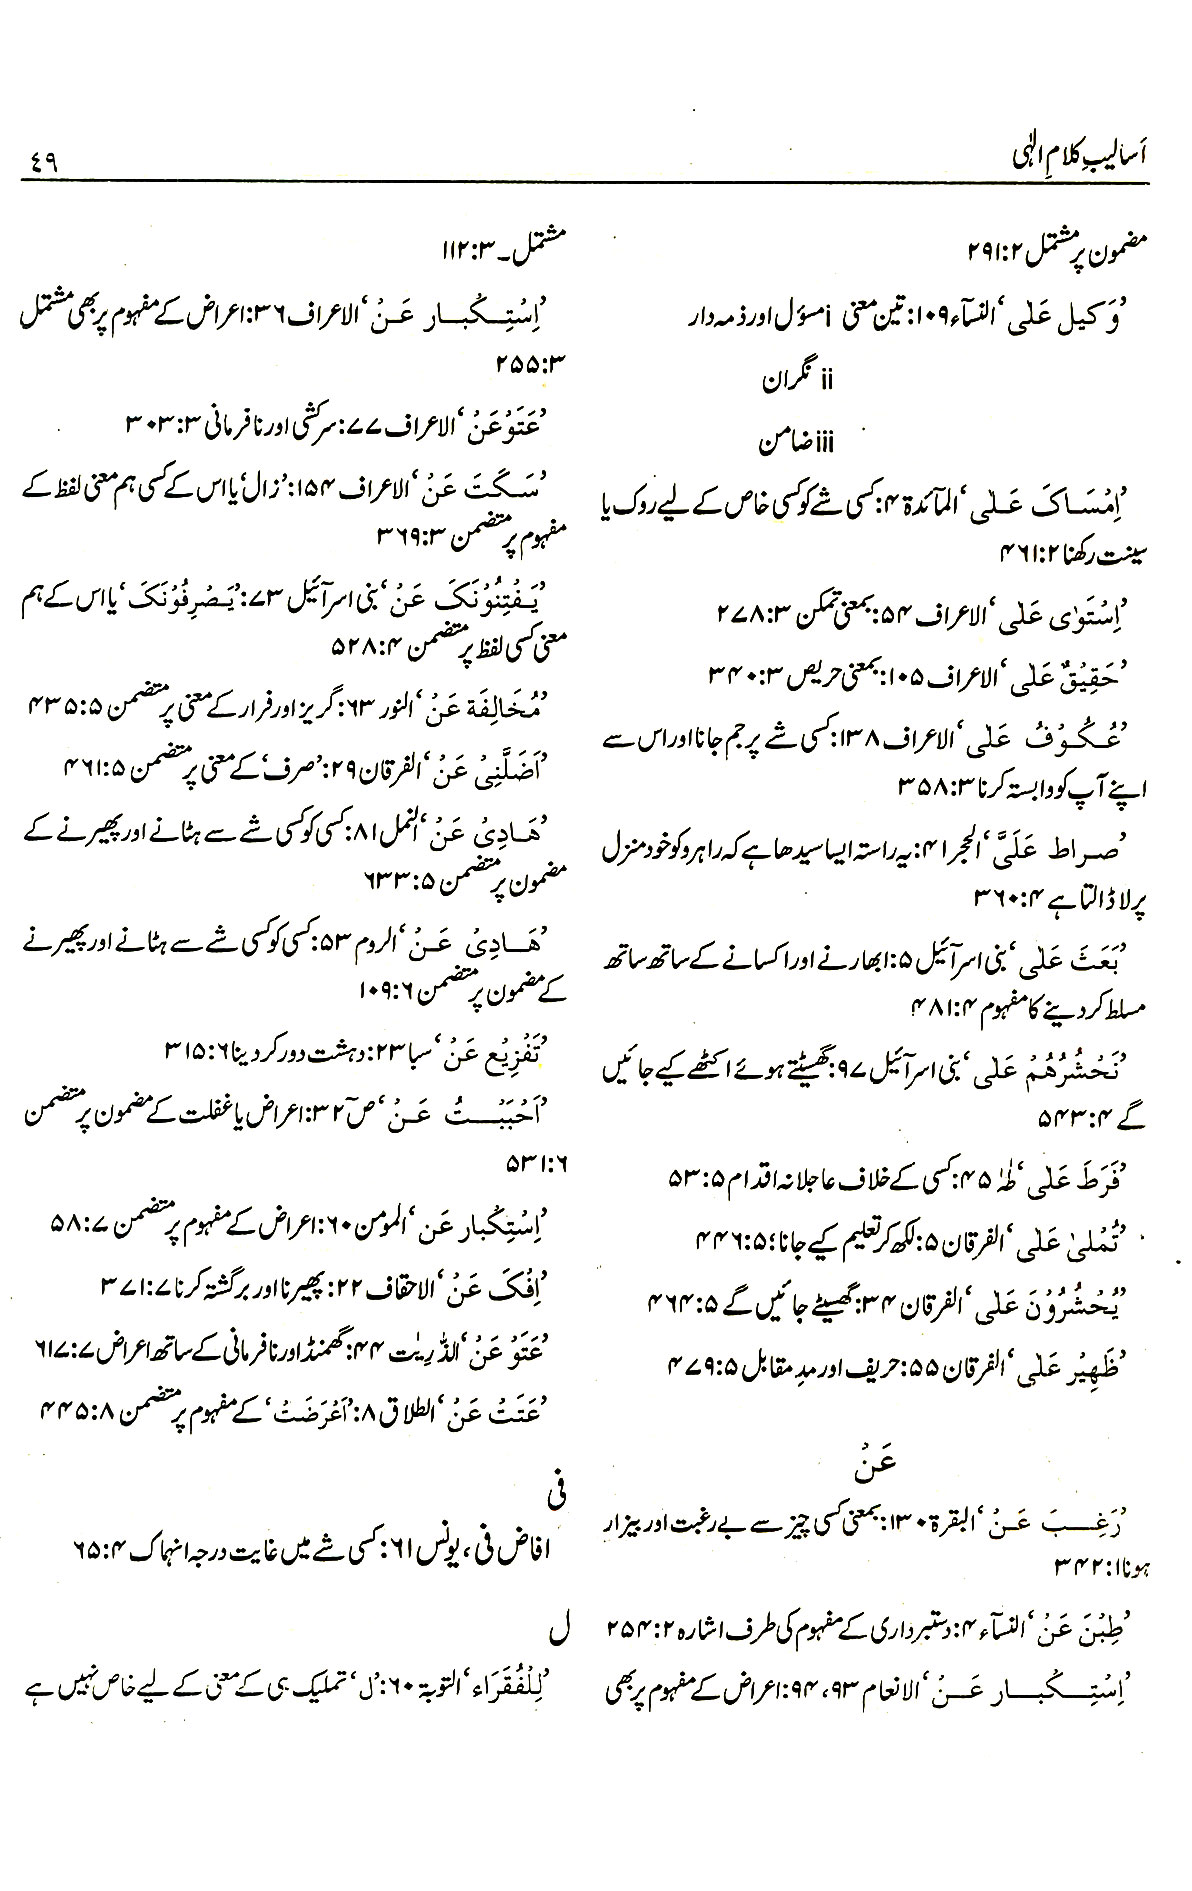 اَسالیبِ کلامِ الٰہی
۴۹
مضمون پر مشتمل ۲:۲۹۱
’وَکیل عَلٰی‘ النسآء ۱۰۹: تین معنی i مسؤل اور ذمہ دار
ii نگران
iii ضامن
’اِمْسَاکَ عَلٰی‘ المآئدۃ ۴: کسی شے کو کسی خاص کے لیے روک یا
سینت رکھنا ۲:۴۶۱
’اِسْتَوٰی عَلٰی‘ الاعراف ۵۴: بمعنی تمکن ۳:۲۷۸
’حَقِیْقٌ عَلٰی‘ الاعراف ۱۰۵: بمعنی حریص ۳:۳۴۰
’عُکُوْفُ عَلٰی‘ الاعراف ۱۳۸: کسی شے پر جم جانا اور اس سے
اپنے آپ کو وابستہ کرنا ۳:۳۵۸
’صراط عَلَیَّ‘ الحجر ۴۱: یہ راستہ ایسا سیدھا ہے کہ راہرو کو خود منزل
پر لا ڈالتا ہے ۴:۳۶۰
’بَعَثَ عَلٰی‘ بنی اسرآئیل ۵: ابھارنے اور اکسانے کے ساتھ ساتھ
مسلط کر دینے کا مفہوم ۴:۴۸۱
’نَحْشُرُھُمْ عَلٰی‘ بنی اسرآئیل ۹۷: گھسیٹتے ہوئے اکٹھے کیے جائیں
گے ۴:۵۴۳
’فَرَطَ عَلٰی‘ طٰہٰ ۴۵: کسی کے خلاف عاجلانہ اقدام ۵:۵۳
’تُمْلیٰ عَلٰی‘ الفرقان ۵: لکھ کر تعلیم کیے جانا؛ ۵:۴۴۶
’یُحْشُرُوْنَ عَلٰی‘ الفرقان ۳۴: گھسیٹے جائیں گے ۵:۴۶۴
’ظَھِیْر عَلٰی‘ الفرقان ۵۵: حریف اور مدِ مقابل ۵:۴۷۹
عَنْ
’رَغِبَ عَنْ‘ البقرۃ ۱۳۰: بمعنی کسی چیز سے بے رغبت اور بیزار
ہونا ۱:۳۴۲
’طِبْنَ عَنْ‘ النسآء ۴: دستبرداری کے مفہوم کی طرف اشارہ ۲:۲۵۴
’اِسْتِکْبار عَنْ‘ الانعام ۹۳، ۹۴: اعراض کے مفہوم پر بھی
مشتمل۔ ۳:۱۱۲
’اِسْتِکْبار عَنْ‘ الاعراف ۳۶: اعراض کے مفہوم پر بھی مشتمل
۳:۲۵۵
’عَتَوْعَنْ‘ الاعراف ۷۷: سرکشی اور نافرمانی ۳:۳۰۳
’سَکَتَ عَنْ‘ الاعراف ۱۵۴: ’زال‘ یا اس کے کسی ہم معنی لفظ کے
مفہوم پر متضمن ۳:۳۶۹
’یَفْتِنُوْنَکَ عَنْ‘ بنی اسرآئیل ۷۳: ’یَصْرِفُوْنَکَ‘ یا اس کے ہم
معنی کسی لفظ پر متضمن ۴:۵۲۸
’مُخَالِفَۃ عَنْ‘ النور ۶۳: گریز اور فرار کے معنی پر متضمن ۵:۴۳۵
’اَضَلَّنِیْ عَنْ‘ الفرقان ۲۹: ’صرف‘ کے معنی پر متضمن ۵:۴۶۱
’ھَادِیْ عَنْ‘ النمل ۸۱: کسی کو کسی شے سے ہٹانے اور پھیرنے کے
مضمون پر متضمن ۵:۶۳۳
’ھَادِیْ عَنْ‘ الروم ۵۳: کسی کو کسی شے سے ہٹانے اور پھیرنے
کے مضمون پر متضمن ۶:۱۰۹
’تَفْزِیْع عَنْ‘ سبا ۲۳: دہشت دور کر دینا ۶:۳۱۵
’اَحْبَبْتُ عَنْ‘ صٓ ۳۲: اعراض یا غفلت کے مضمون پر متضمن
۶:۵۳۱
’اِسْتِکْبار عَن‘ المومن ۶۰: اعراض کے مفہوم پر متضمن ۷:۵۸
’اِفْکَ عَنْ‘ الاحقاف ۲۲: پھیرنا اور برگشتہ کرنا ۷:۳۷۱
’عَتَوْ عَنْ‘ الذّٰرِیٰت ۴۴: گھمنڈ اور نافرمانی کے ساتھ اعراض ۷:۶۱۷
’عَتَتْ عَنْ‘ الطلاق ۸: ’اَعْرَضَتْ‘ کے مفہوم پر متضمن ۸:۴۴۵
فی
افاض فی، یونس ۶۱: کسی شے میں غایت درجہ انہماک ۴:۶۵
ل
’لِلْفُقَرَاء‘ التوبۃ ۶۰: ’ل‘ تملیک ہی کے معنی کے لیے خاص نہیں ہے